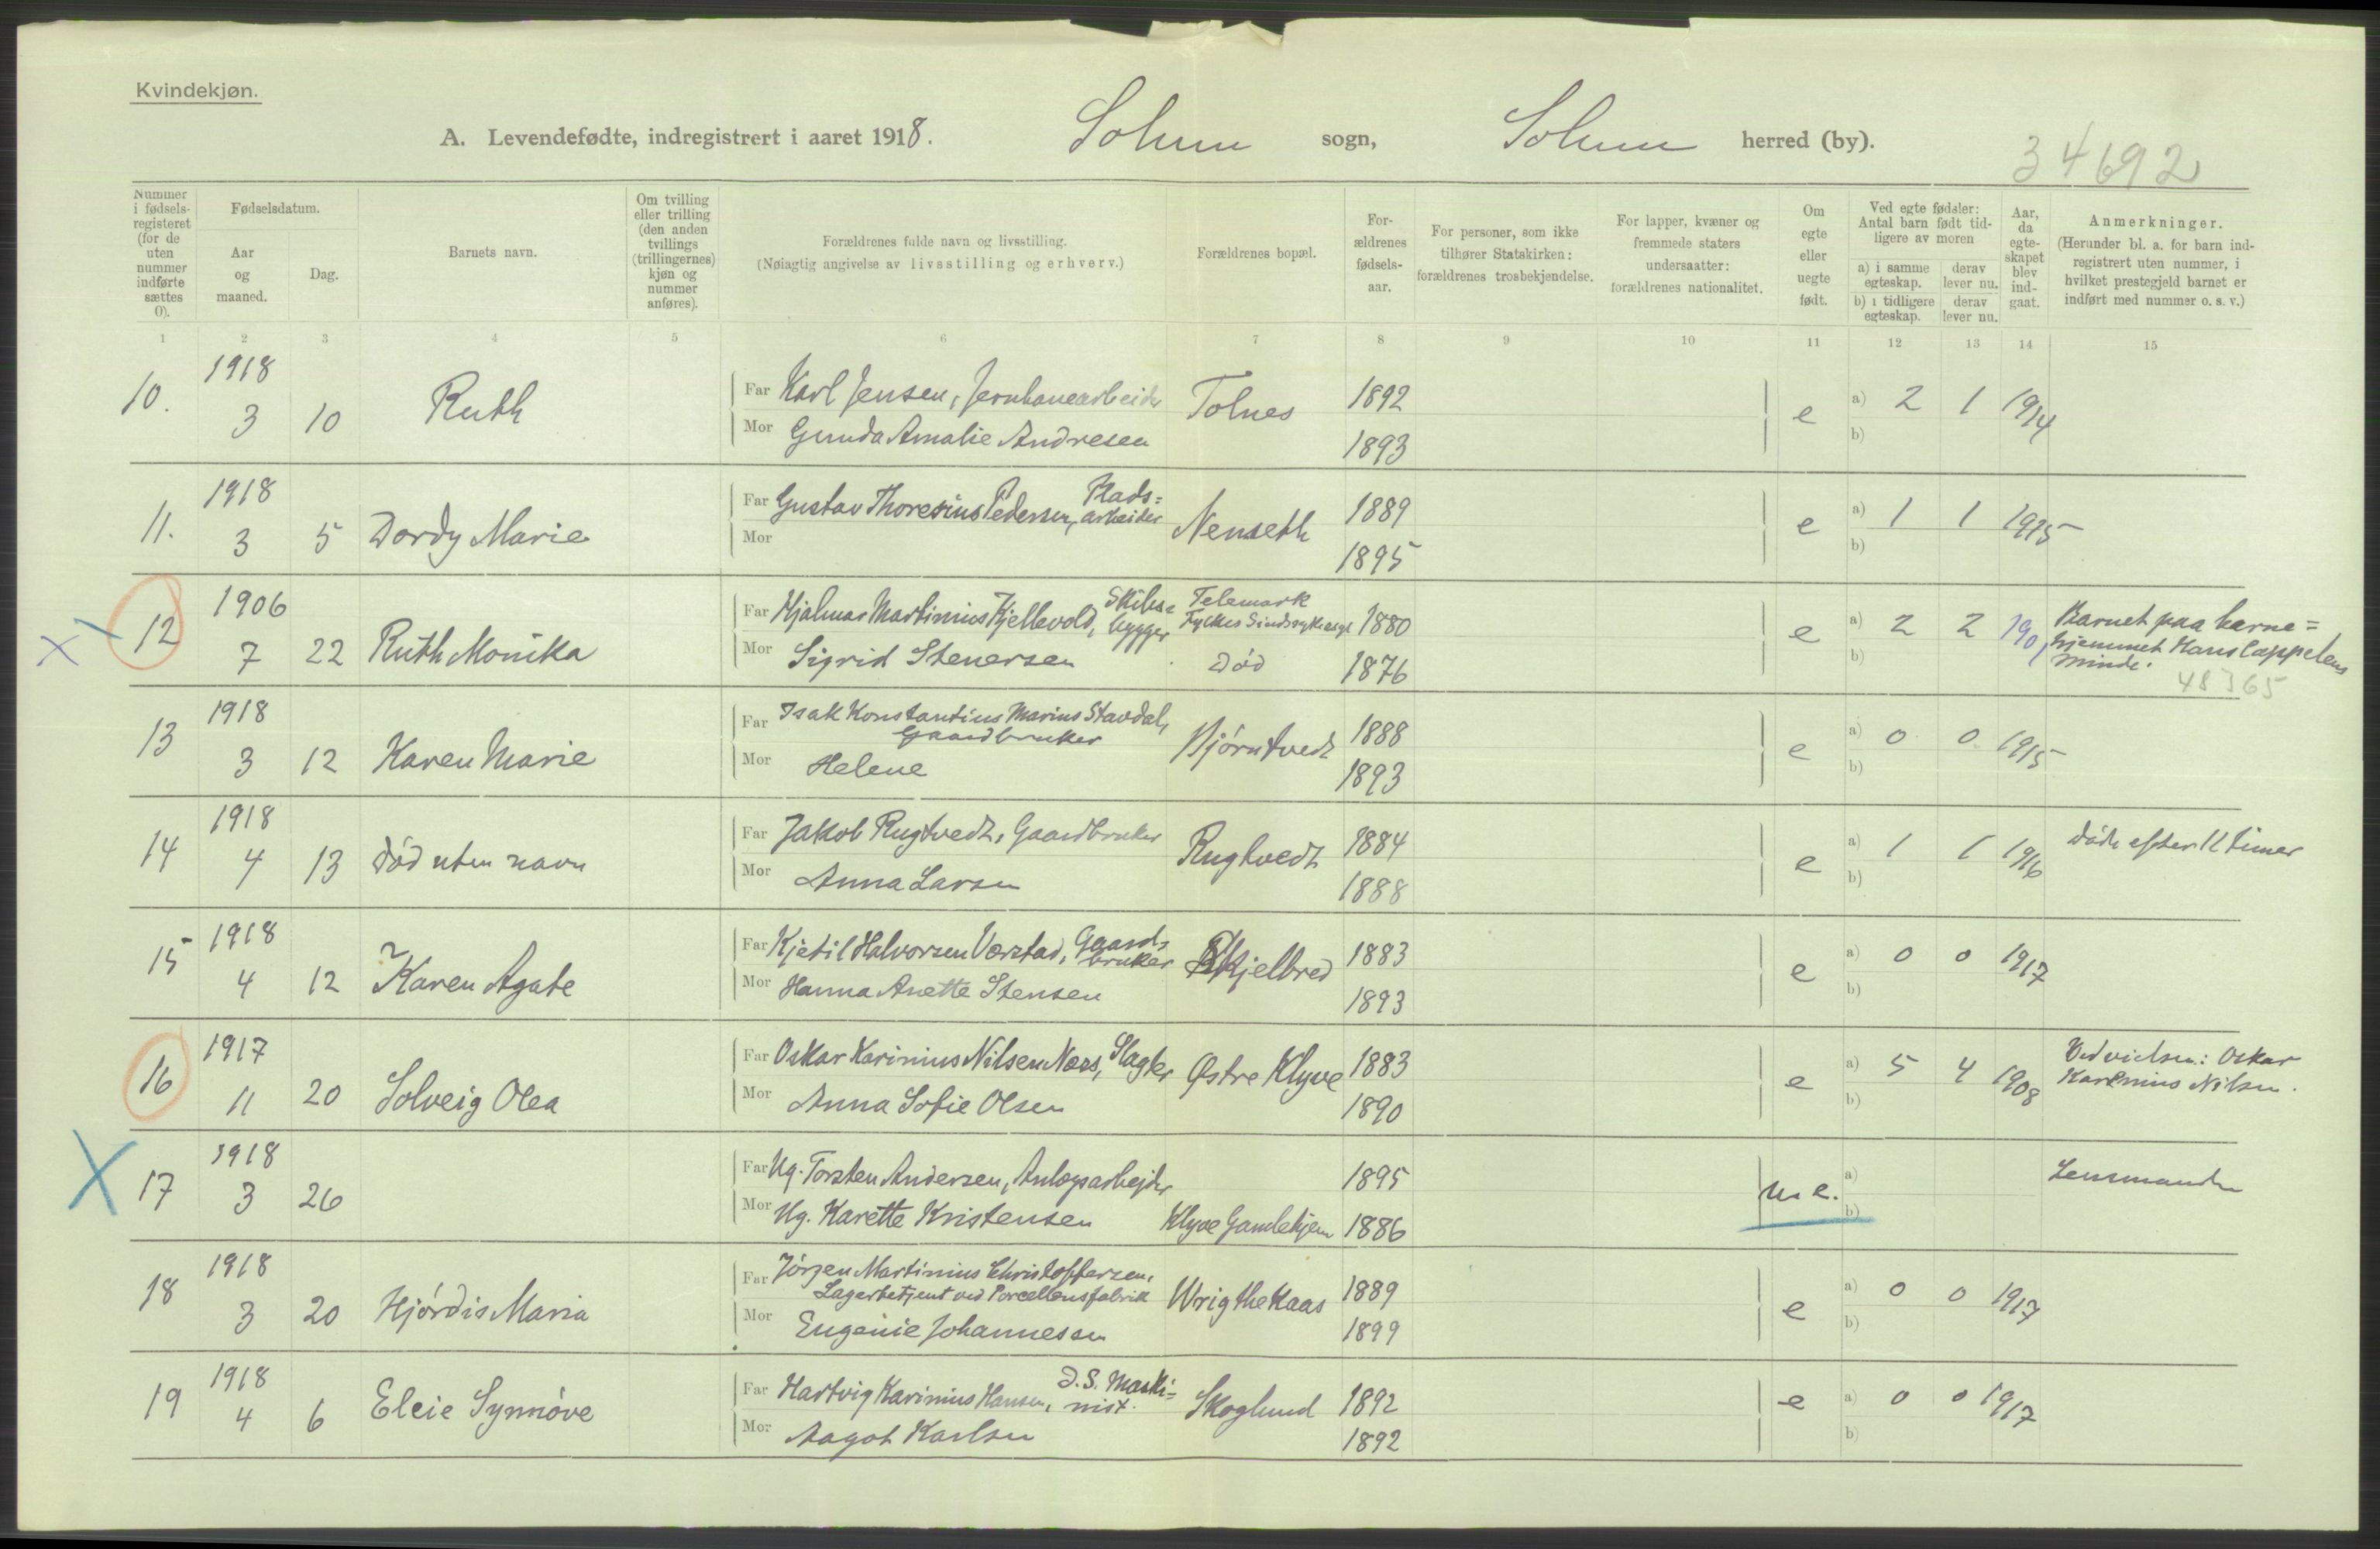 Kvindekjøn.
A. Levendefødte, indregistrert i aaret 1918. Solum sogn, Solum herred (by).
34692
Nummer i fødsels-registeret (for de uten nummer indførte sættes 0).
Fødselsdatum.
Aar og maaned.
Dag.
Barnets navn.
Om tvilling eller trilling (den anden tvillings (trillingernes) kjøn og nummer anføres).
Forældrenes fulde navn og livsstilling.
(Nøiagtig angivelse av livsstilling og erhverv.)
Forældrenes bopæl.
For-ældrenes fødsels-aar.
For personer, som ikke tilhører Statskirken: forældrenes trosbekjendelse.
For lapper, kvæner og fremmede staters undersaatter: forældrenes nationalitet.
Om egte eller uegte født.
Ved egte fødsler: Antal barn født tid-ligere av moren
a) i samme egteskap.
derav lever nu.
b) i tidligere egteskap.
derav lever nu.
Aar, da egte-skapet blev ind-gaat.
Anmerkninger.
(Herunder bl. a. for barn ind-registrert uten nummer, i hvilket prestegjeld barnet er indført med nummer o. s. v.)
1 2 3 4 5 6 7 8 9 10 11 12 13 14 15
10. 1918 3 10 Ruth
Far Karl Jensen, Jernbanearbeider Tolnes 1892
Mor Gunda Amalie Andresen 1893
e a) 2 1 1914
b)
11. 1918 3 5 Dordy Marie
Far Gustav Thoresius Pedersen, Plads=arbeider Nenseth 1889
Mor 1895
e a) 1 1 1915
b)
12 1906 7 22 Ruth Monika
Far Hjalmar Martinius Kjellevold, Skibs=bygger Telemark Fylkes Sindssykeasyl 1880
Mor Sigrid Stenersen Død 1876
e a) 2 2 1901
b)
Barnet paa barne=
hjemmet Hans Cappelens
minde.
48365
13 1918 3 12 Karen Marie
Far Isak Konstantius Marius Stavdal, Gaardbruker Bjørntvedt 1888
Mor Helene 1893
e a) 0 0 1915
b)
14 1918 4 13 Død uten navn
Far Jakob Rugtvedt, Gaardbruker Rugtvedt 1884
Mor Anna Larsen 1888
e a) 1 1 1916
b)
Døde efter 11 timer
15 1918 4 12 Karen Agate
Far Kjetil Halvorsen Værstad, Gaard=bruker Skjelbred 1883
Mor Hanna Anette Stensen 1893
e a) 0 0 1917
b)
16 1917 11 20 Solveig Olea
Far Oskar Karinius Nilsen Næss, Slagter Østre Klyve 1883
Mor Anna Sofie Olsen 1890
e a) 5 4 1908
b)
Ved vielsen: Oskar
Karenius Nilsen.
17 1918 3 26
Far Ug. Torsten Andersen, Anlægsarbejder 1895
Mor Ug. Karette Kristensen Klyve Gamlehjem 1886
u e. a)
b)
Lensmanden
18 1918 3 20 Hjørdis Maria
Far Jörgen Martinius Christoffersen, Lagerbetjent ved Porcellensfabrik Wrigthekaas 1889
Mor Eugenie Johannessen 1899
e a) 0 0 1917
b)
19 1918 4 6 Elcie Synnøve
Far Hartvig Karinius Hansen, D.S. Maski=nist. Skoglund 1892
Mor Aagot Karlsen 1892
e a) 0 0 1917
b)